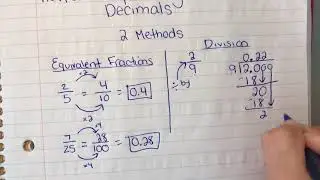 Decimals
2 Methods
Equivalent Fractions
×2
2/5 = 4/10 = 0.4
×2
×4
7/25 = 28/100 = 0.28
×4
Division
2/9
÷ by
0.22
9 2.000
-18
20
-18
2